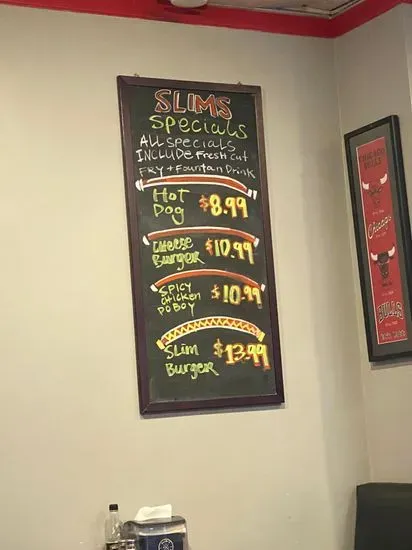 SLIMS
Specials
ALL Specials
INCLUDE Fresh Cut
FRY + Fountain Drink
Hot
Dog $8.99
Cheese
Burger $10.99
Spicy
chicken
PO BOY $10.99
Slim
Burger $13.99
CHICAGO
BULLS
Chicago
BULLS